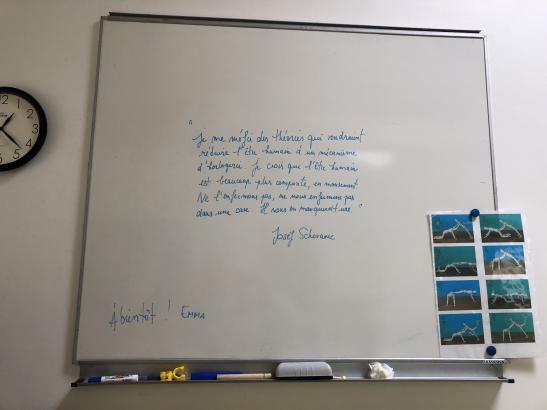 "Je me méfie des théories qui voudraient
réduire l'être humain à un mécanisme
d'horlogerie. Je crois que l'être humain
est beaucoup plus complexe, en mouvement.
Ne l'enfermons pas, ne nous enfermons pas
dans une case. Il nous en manquerait une."
Josef Schovanec
À bientôt ! EMMA
12
1
2
3
4
5
6